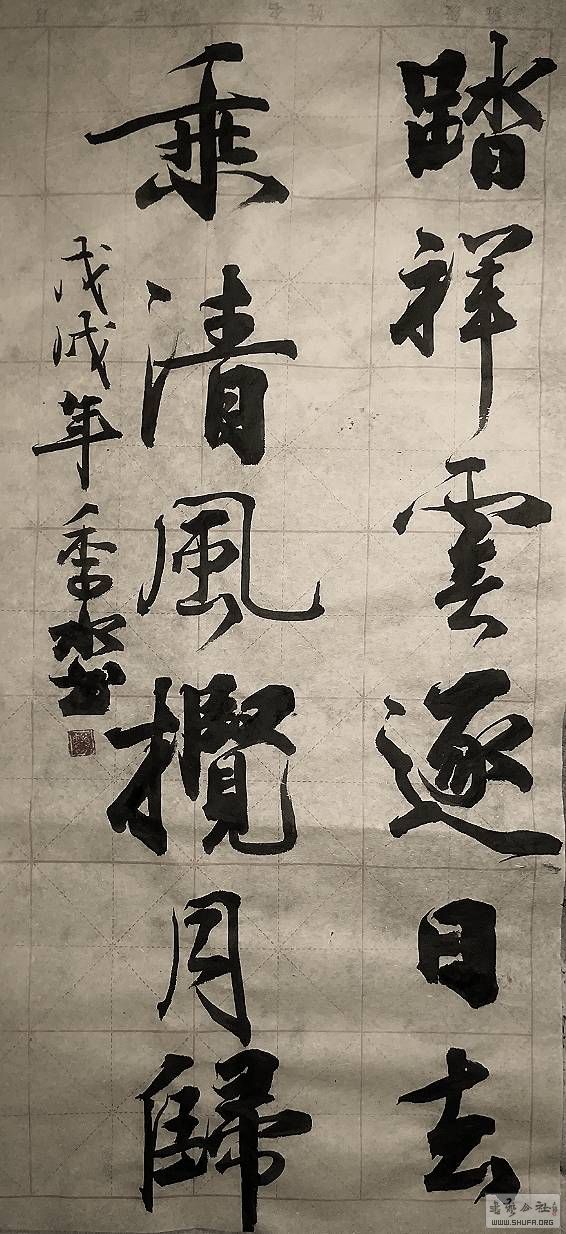 踏祥雲逐日去
乘清風攬月歸
戊戌年季水書
WWW.SHUFA.ORG